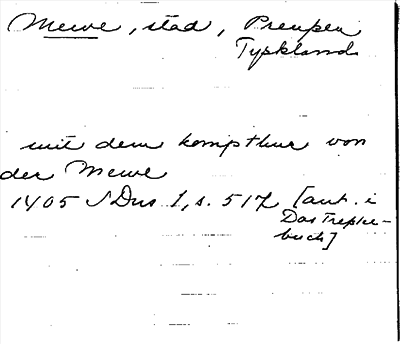 Mewe, stad, Preupen
Tyskland
mit dem kompthur von
der Mewe
1405 SDns 1, s. 517 [ant. i
Das Tresler-
buch]